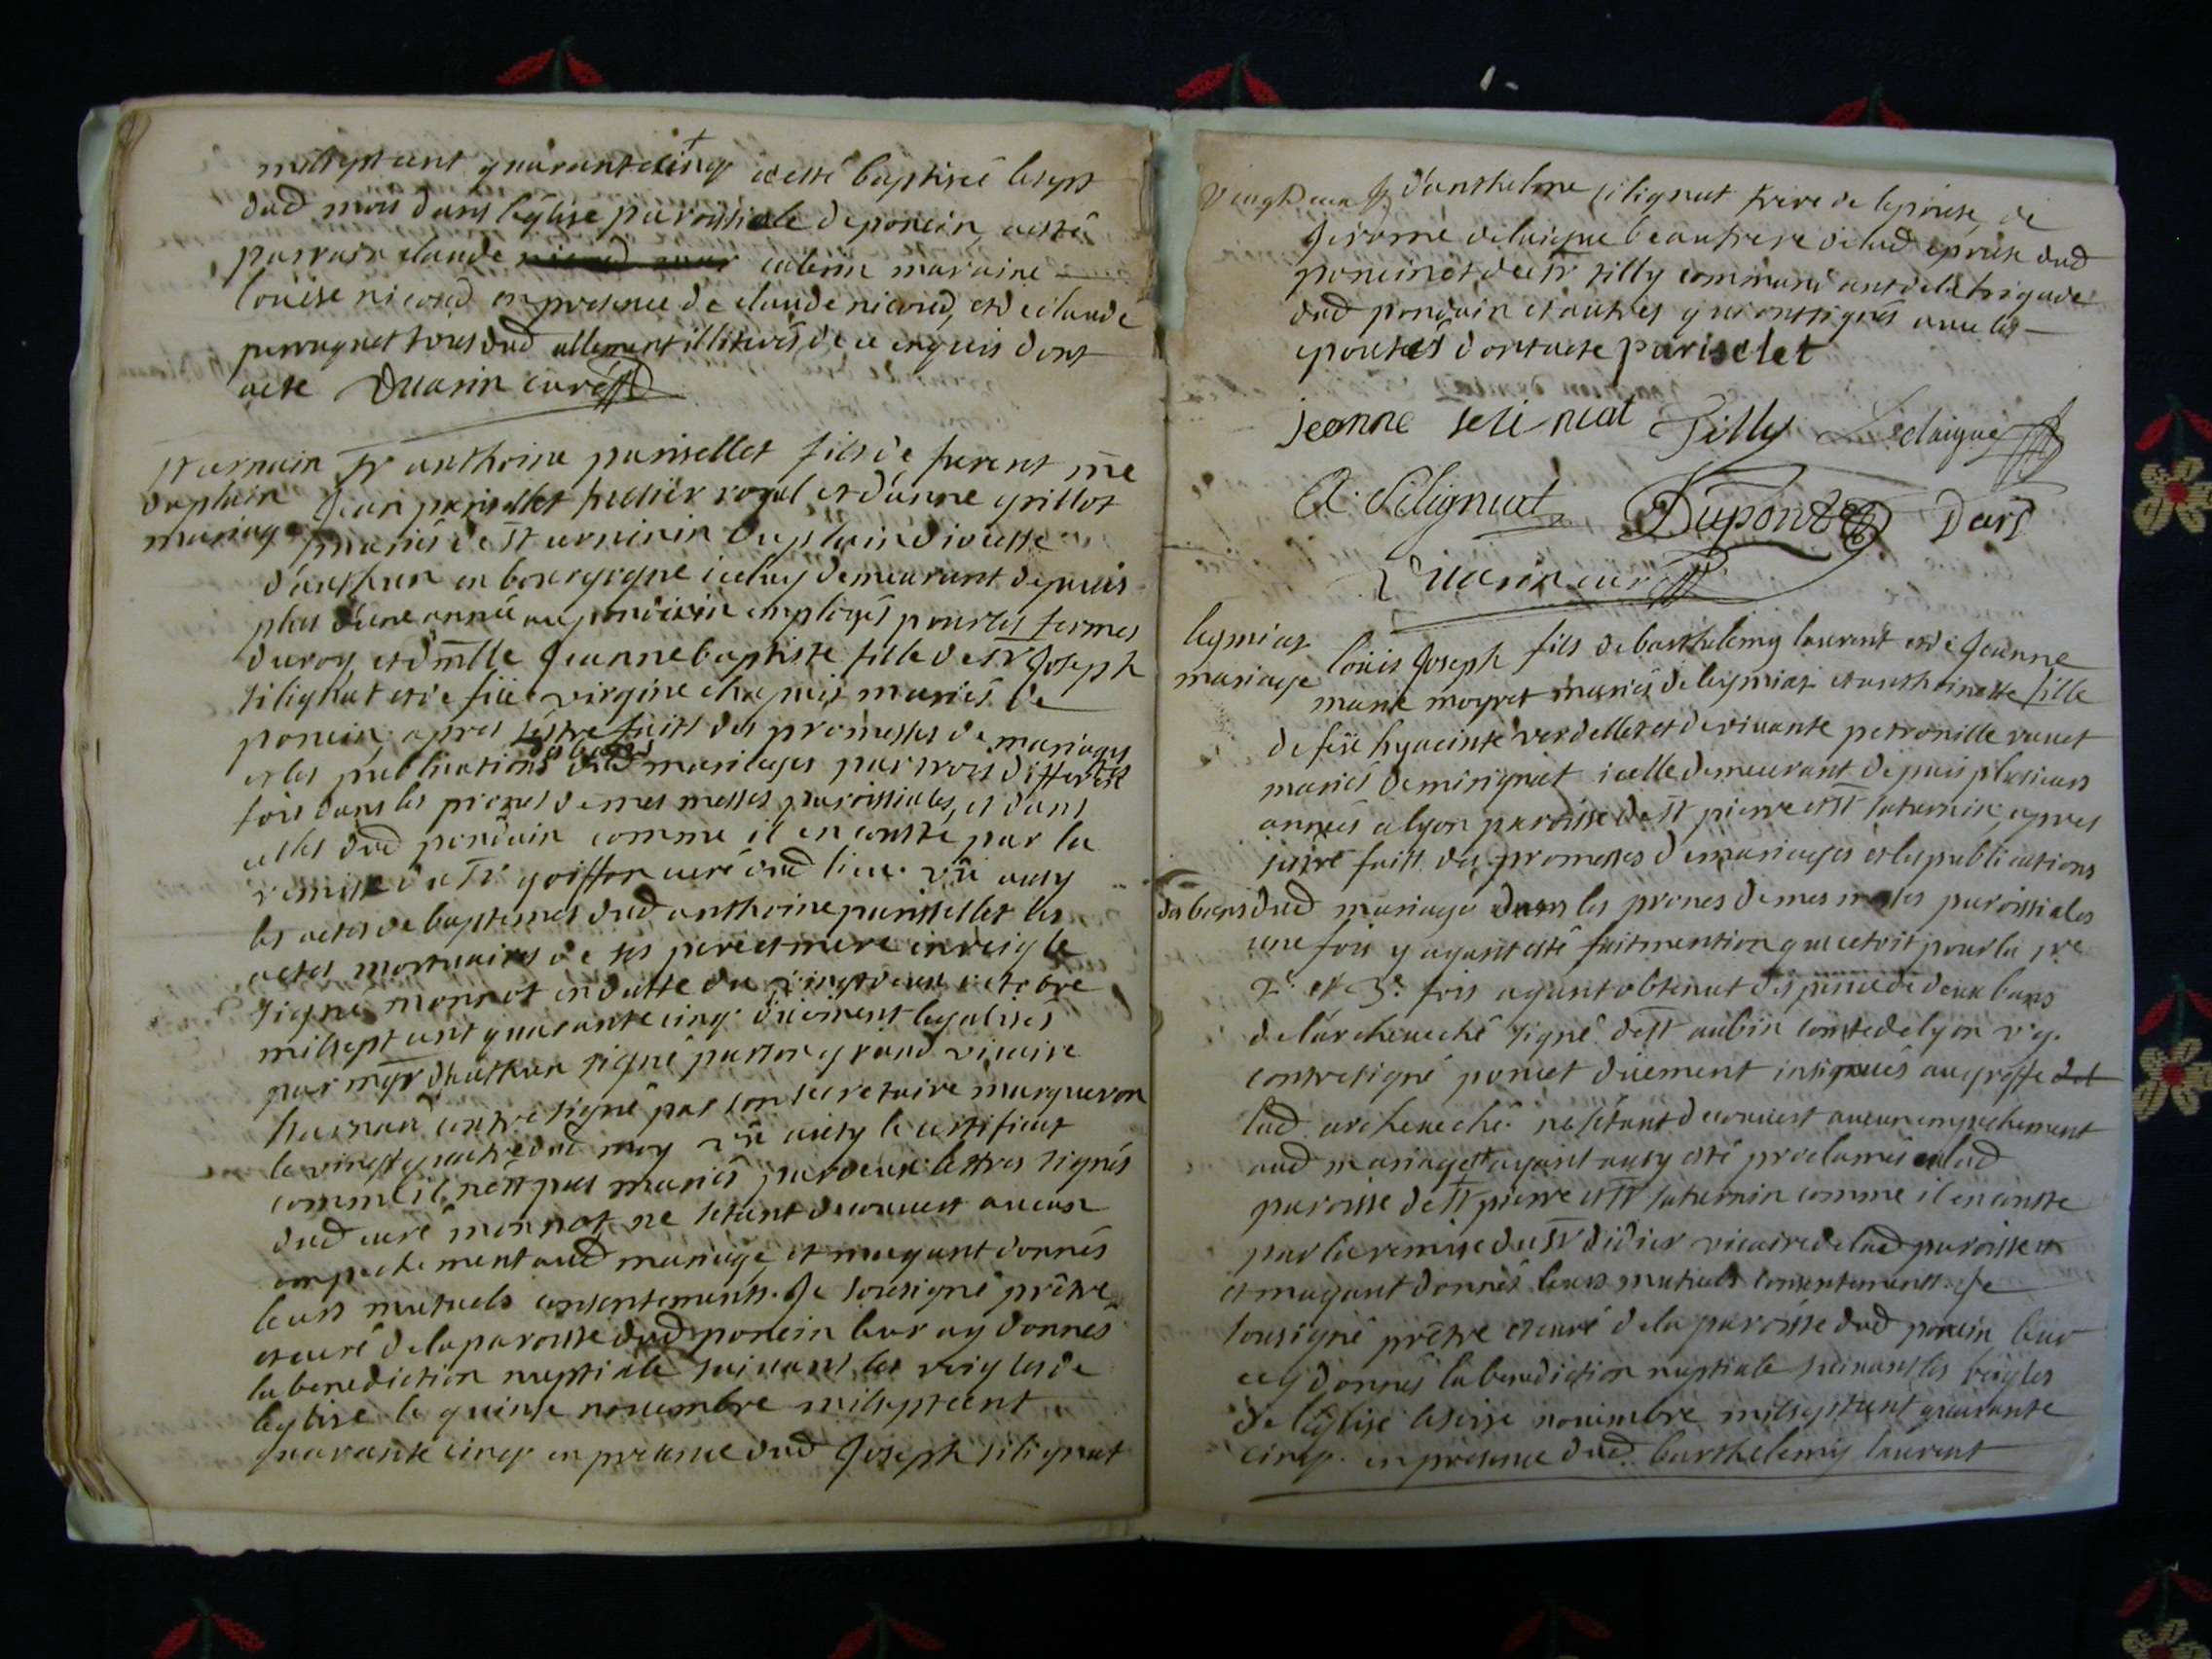 milsept cent quarantecinq a esté baptisée le sept
dud mois dans leglise paroissiale de poncin, a esté
parrain claude cabrin maraine
loüise nicoud en presence de claude nicoud, et de claude
perruquet tous dud allement illiterés de ce enquis dont
acte Vuarin curé
St urnain
duplain
mariage
Sr anthoine parisellet fils de furent me
Jean parisellet huissier royal et d'anne grillot
mariés de St urninin du plain diocesse
d'authun en bourgogne iceluy demeurant depuis
plus dune année au pondin employés pour les fermes
du roy, et dmlle Jeanne baptiste fille de Sr Joseph
silignat et de füe virgine chapuis mariés de
poncin, apres s'estre faits des promesses de mariages
et les publications des bans dud mariages par trois differente
fois dans les prones de mes messes paroissiales, et dans
celles dud pondain comme il en conste par la
remisse du Sr goiffon curé dud lieu. vû ausy
les actes de baptemes dud anthoine parissellet les
actes mortuaires de ses pere et mere en reigle
signé monnot en datte du vingt deux octobre
milsept cent quarante cinq düement legalisés
par mgr dhautun signé par son grand vicaire
contre signé par son secretaire marqueron
le vingt quatre dud moy vû ausy le certificat
comme il n'est pas mariés par deux lettres signés
dud curé monnot ne setant decouvert aucun
empechement aud mariage, et mayant donnés
leurs mutuels consentements. Je sousigné prêtre
et curé de la paroisse dud poncin leur ay donnés
la benediction nuptiale suivant les reigles de
leglise le quinse novembre milsept cent
quarante cinq en presence dud Joseph silignat
d'anthelme silignat frere de lepouse, de
Jerôme delaigue beaufrere de lad epouse dud
poncin et du Sr silly commandant de la brigade
dud pondain et autres qui ont signés avec les
epouses dont acte pariselet
jeanne seli niat Silly Delaigue
A. Silignat Dupont Dard
Vuarin curé
leymiaz
mariage
loüis Joseph fils de barthelemy laurent et de Jeanne
marie moyret mariés de leymiaz et anthoinette fille
de feü hyacinte verdellet et de vivante petronille ravet
mariés de mirignat icelle demeurant depuis plusieurs
années a lyon paroisse de St pierre et St saturnin, apres
setre faitt des promesses de mariages et les publications
des bans dud mariage dans les prones de mes messes paroissiales
une fois y ayant esté fait mention que cetoit pour la pre
2e et 3e fois ayant obtenut dispense de deux bans
de l'archeveché signé de St aubin comte de lyon v. g.
contresigné poncet düement insignués au greffe
lad archeveché ne sétant decouvert aucun empechement
aud mariage et ayant ausy esté proclamés en lad
paroisse de St pierre et St saturnin comme il en conste
par la remisse du Sr didier vicaire de lad paroisse et
et mayant donnés leurs mutuels consentements. Je
sousigné prêtre et curé de la paroisse dud poncin leur
ay donnés la benediction nuptiale suivant les reigles
de leglise le seize novembre milsept cent quarante
cinq. en presence dud. barthelemy laurent